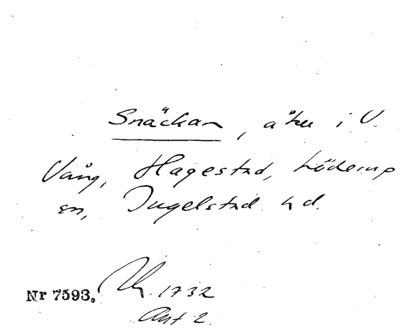 Snäckan, åker i V.
Vång, Hagestad, Löderup
sn, Ingelstad hd.
Nr 7593. 1732
Akt 2.